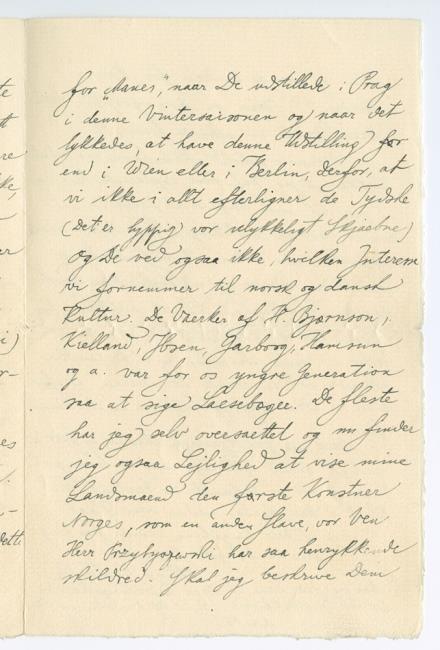 for „Manes", naar De udstillede i Prag
i denne Vintersaisonen og naar det
lykkedes, at have denne Udstilling før
end i Wien eller i Berlin, derfor, at
vi ikke i allt efterligner de Tydske
(det er hyppig vor ulykkeligt Skjaebne)
og De ved ogsaa ikke, hvilken Interesse
vi fornemmer til norsk og dansk
Kultur. De Vaerker af H. Bjørnson,
Kielland, Ibsen, Garborg, Hamsun
og a. var for os yngre Generation
saa at sige Laesebøger. De fleste
har jeg selv oversaettet og nu finder
jeg ogsaa Lejlighed at vise mine
Landsmaend den første Konstner
Norges, som en anden Slave, vor Ven
Herr Przybyszewski har saa henrykkende
skildred. Skal jeg beskrive Dem